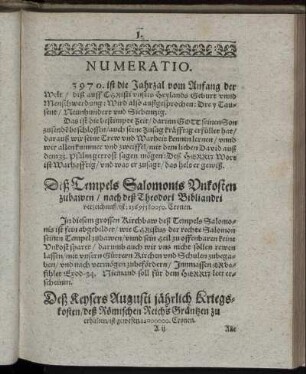 1.
NUMERATIO.
3970. ist die Jahrzal vom Anfang der
Welt / biß auff CHRISTI vnsers Heylands Geburt vnnd
Menschwerdung: Wird also außgesprochen: Drey Tau-
sent / Neunhundert vnd Siebentzig.
Das ist die bestimpte Zeit / darinn GOTT seinen Son
zusenden beschlossen / auch seine Zusag kräfftig erfüllet hat /
daraus wir seine Trew vnd Warheit kennen lernen / vnd
wir allen kummer vnd zweiffel / mit dem lieben David auß
dem 33. Psalm getrost sagen mögen: Deß HERRN Wort
ist Warhafftig / vnd was er zusagt / das helt er gewiß.
Deß Tempels Salomonis Vnkosten
zubawen / nach deß Theodori Bibliandri
verzeichnuß, ist, Cronen.
In diesem grossen Kirchbaw deß Tempels Salomo-
nis ist fein abgebildet / wie CHRISTUS der rechte Salomon
seinen Tempel zubawen / vnnd sein
Vnkost sparet / darumb auch wir vns nicht sollen rewen
lassen / mit vnsern Gütern Kirchen vnd Schulen zubega-
ben / vnd nach vermögen zubefördern / Inmassen GOtt
befihlet Exod. 34. Niemand soll für dem HERRN leer er-
scheinen.
Deß Keysers Augusti jährlich Kriegs-
kosten / deß Römischen Reichs Gräntzen zu
erhalten, ist gewesen Cronen.
A ij.